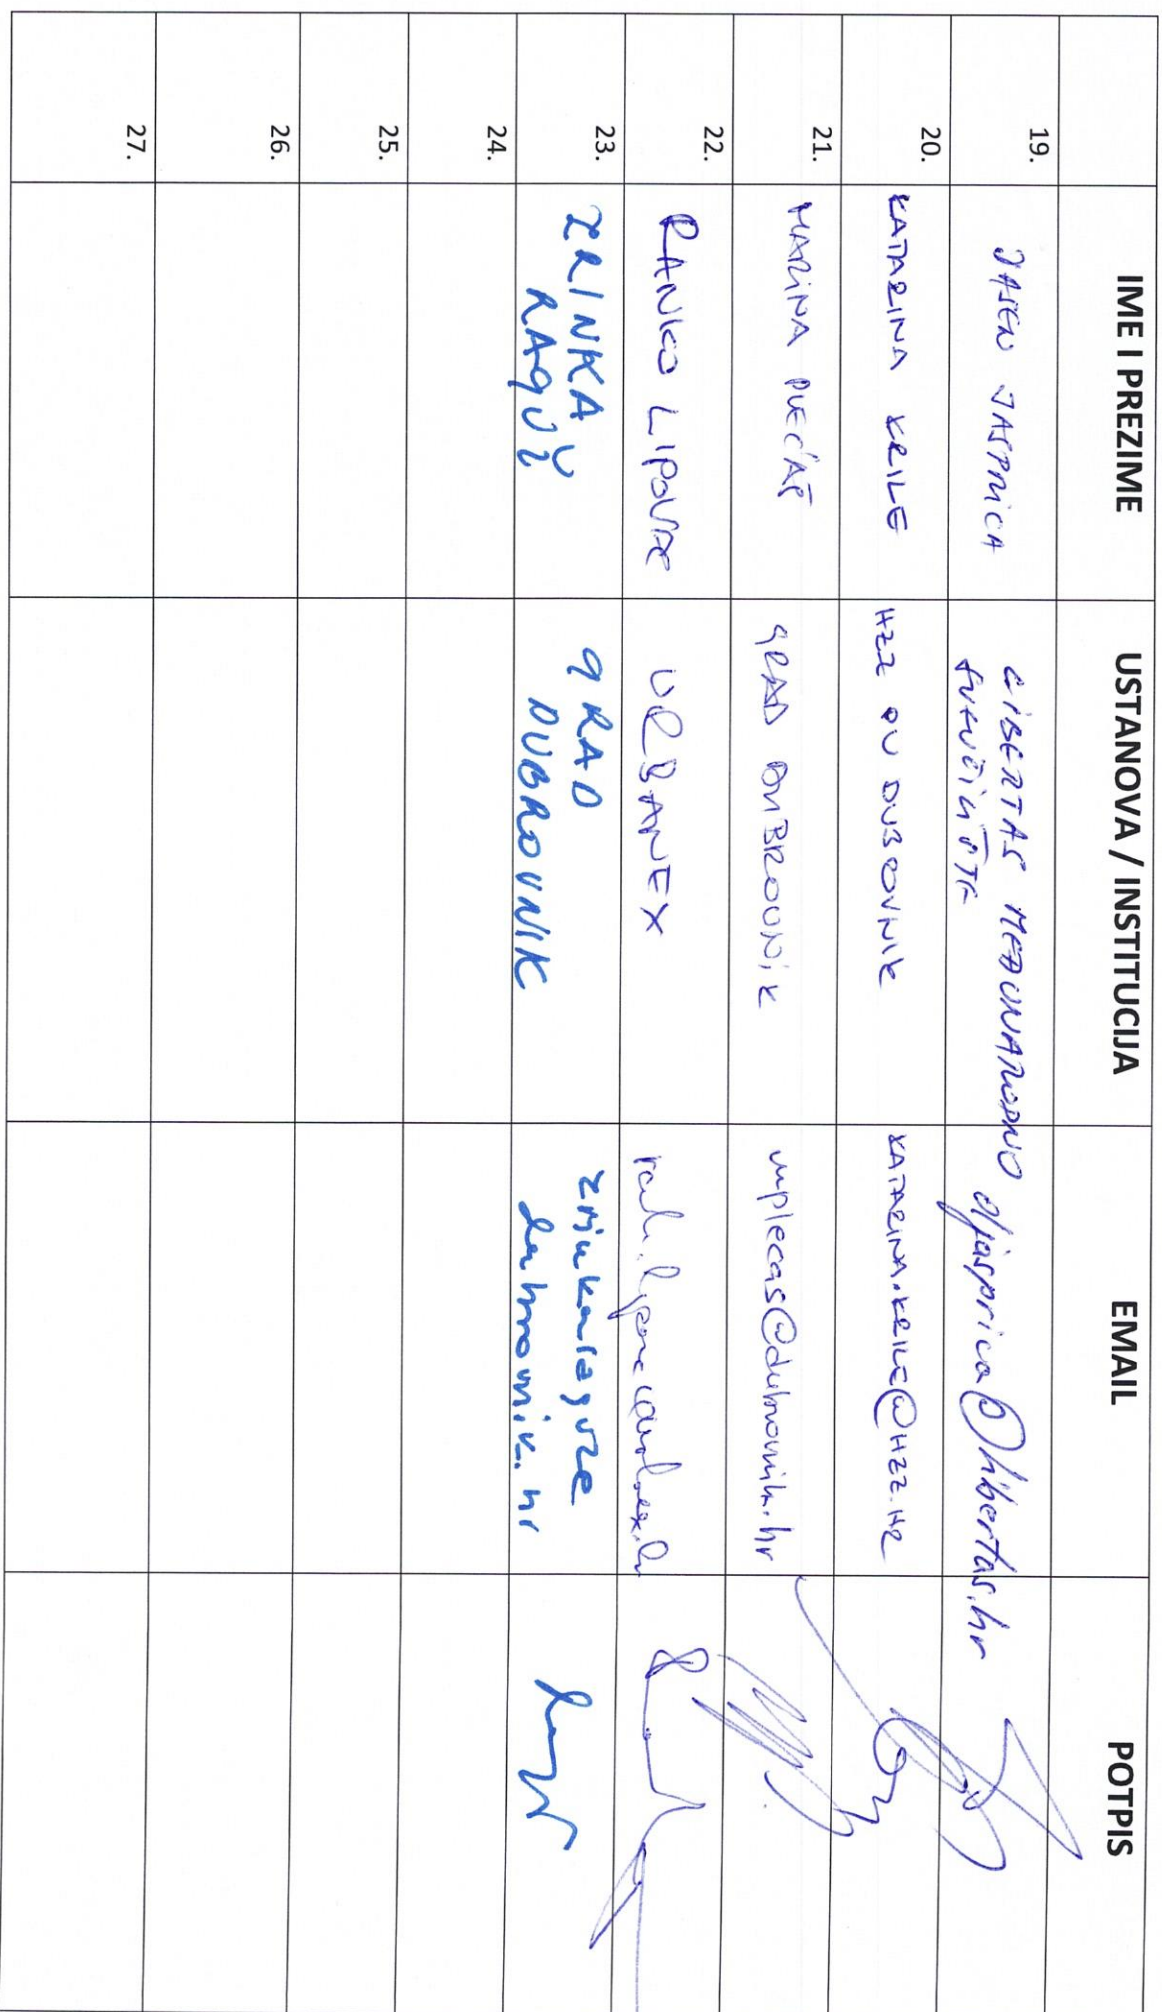 IME I PREZIME USTANOVA / INSTITUCIJA EMAIL POTPIS
19. JASEN JASPRICA LIBERTAS MEĐUNARODNO jjasprica@libertas.hr
SVEUČILIŠTE
20. KATARINA KRILE HZZ PU DUBROVNIK KATARINA.KRILE@HZZ.HR
21. MARINA PLEĆAŠ GRAD DUBROVNIK mplecas@dubrovnik.hr
22. RANKO LIPOVAC URBANEX
23. ZRINKA GRAD zrinkaraguze
RAGUŽ DUBROVNIK dubrovnik.hr
24.
25.
26.
27.